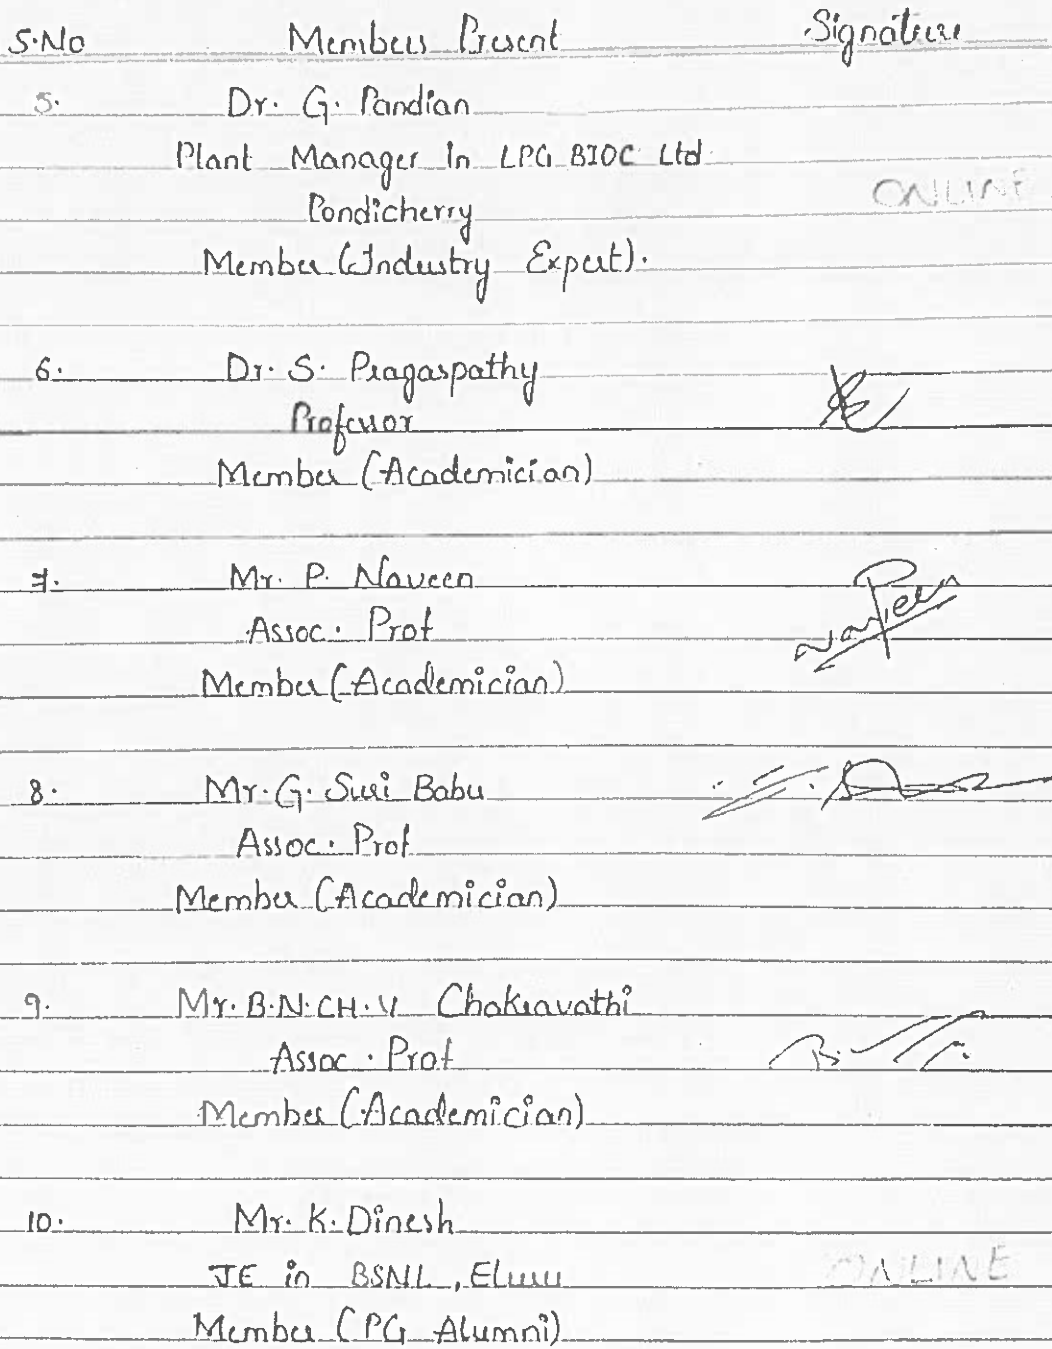 S.No Members Present Signature
5. Dr. G. Pandian
Plant Manager In LPG BIOC Ltd
ONLINE
Pondicherry
Member (Industry Expert).
6. Dr. S. Pragaspathy
Professor
Member (Academician)
7. Mr. P. Naveen
Assoc. Prof
Naveen
Member (Academician)
8. Mr. G. Suri Babu
Assoc. Prof
Member (Academician)
9. Mr. B.N.CH.V Chakravathi
Assoc. Prof
Member (Academician)
10. Mr. K. Dinesh
JE in BSNL, Eluru ONLINE
Member (PG Alumni)